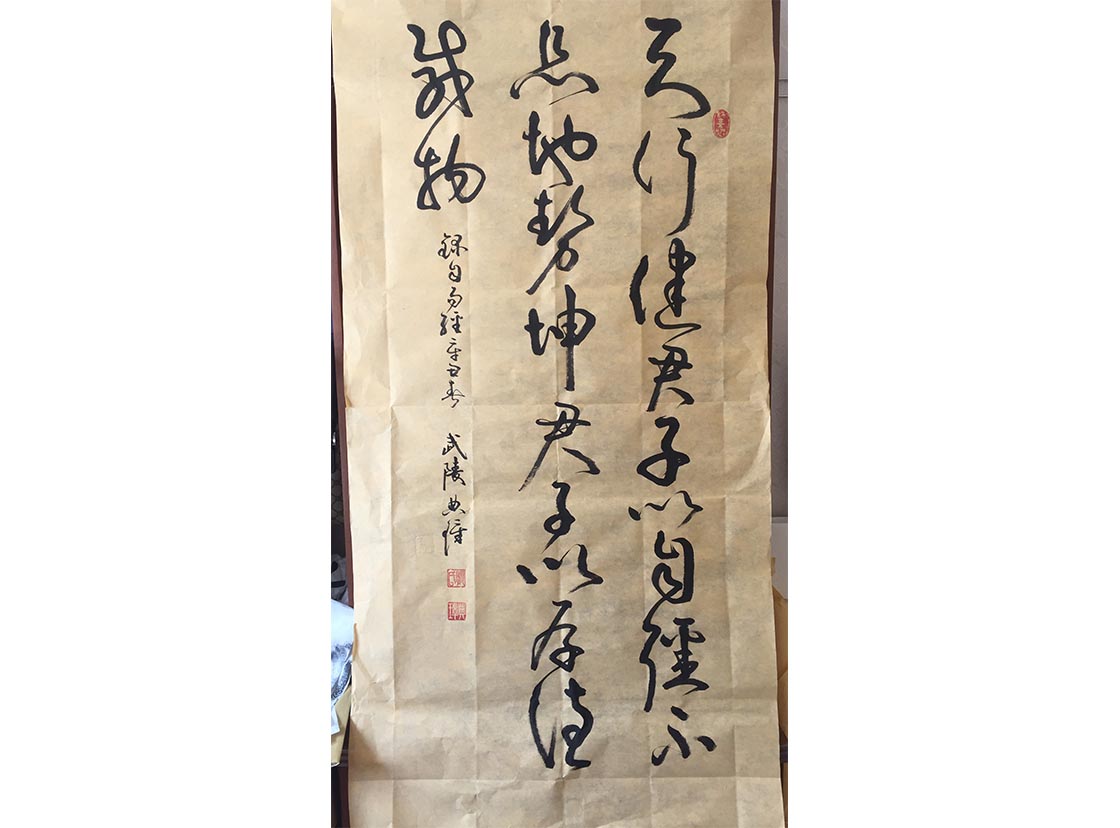 天行健君子以自强不
息地势坤君子以厚德
载物
録自易經辛丑春 武陵典璋